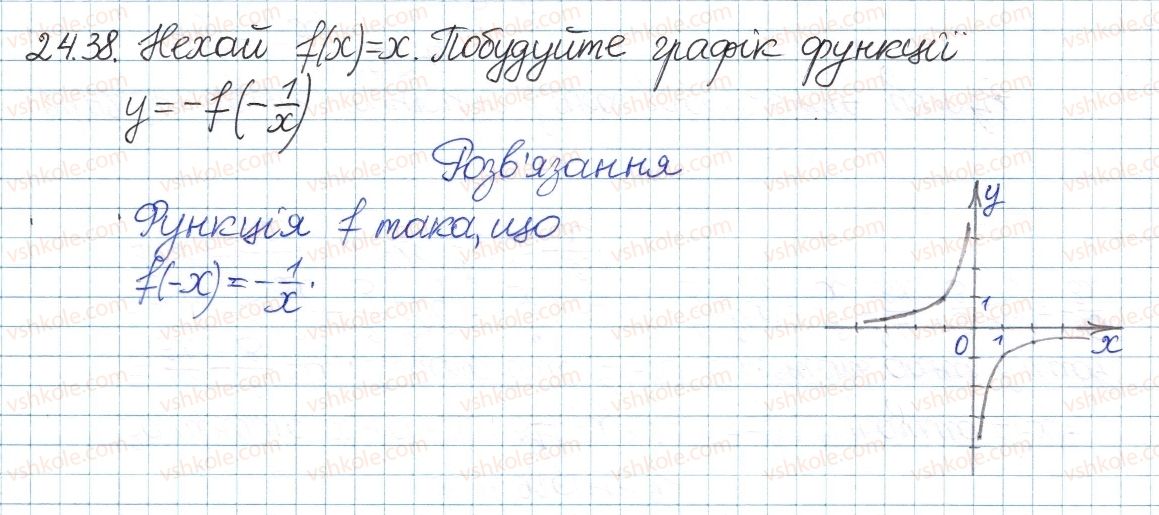 24.38. Нехай f(x)=x. Побудуйте графік функції
y = -f(-1/x)
Розв'язання
Функція f така, що
f(-x) = -1/x.
y
1
0 1 x
vshkole.com